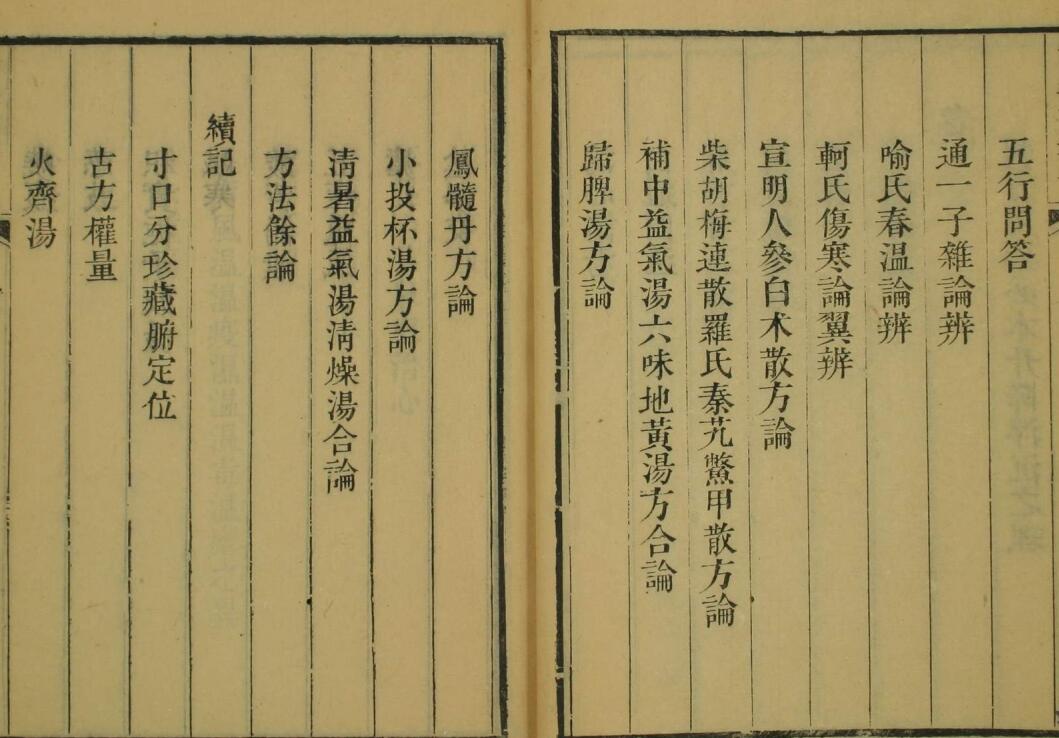 五行問答
通一子雜論辨
喻氏春温論辨
軻氏傷寒論翼辨
宣明人參白术散方論
柴胡梅連散羅氏秦艽鱉甲散方論
補中益氣湯六味地黃湯方合論
歸脾湯方論
鳳髓丹方論
小投杯湯方論
淸暑益氣湯淸燥湯合論
方法餘論
續記
寸口分珍藏腑定位
古方權量
火齊湯